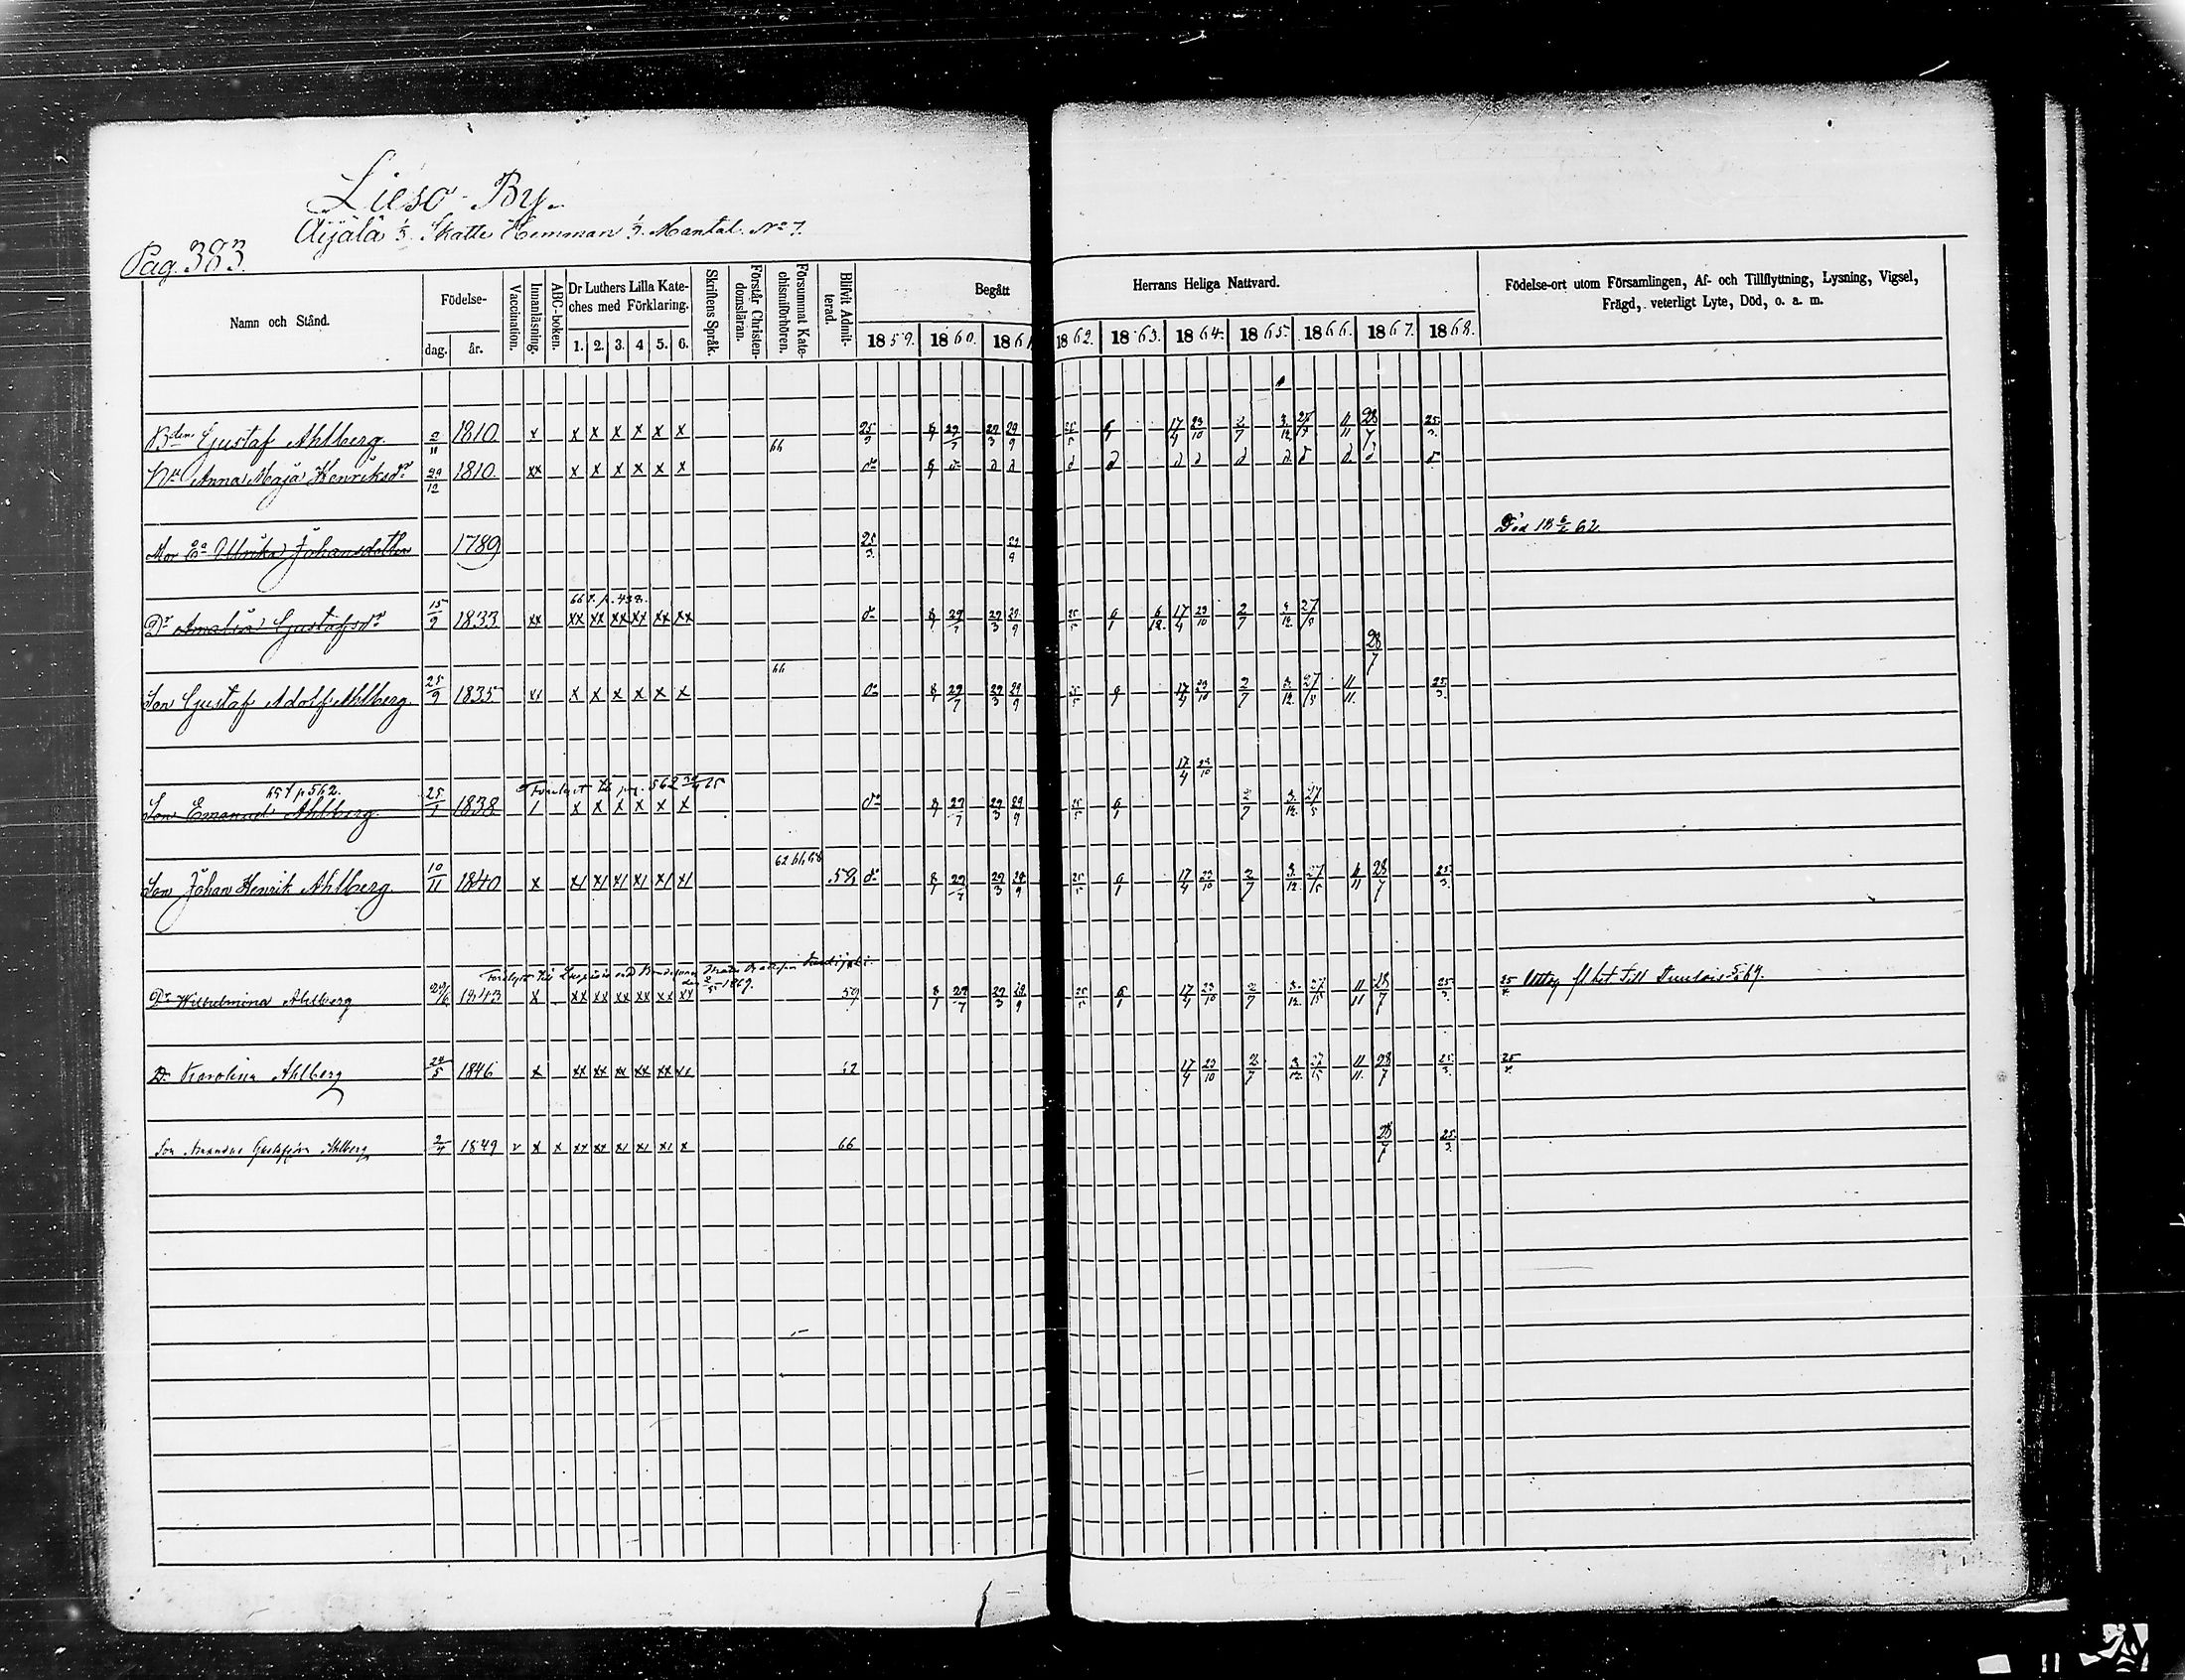 Lieso By.
Äijälä 1/3. Skatte Hemman 1/3. Mantal. No 7.
Pag. 383.
Namn och Stånd.
Födelse-
dag. år.
Vaccination.
Innanläsning.
ABC-boken.
Dr Luthers Lilla Kate-
ches med Förklaring.
1. 2. 3. 4 5. 6.
Skriftens Språk.
Förstår Christen-
domsläran.
Försummat Kate-
chismiförhören.
Blifvit Admit-
terad.
Begått Herrans Heliga Nattvard.
1859. 1860. 1861 1862. 1863. 1864. 1865. 1866. 1867. 1868.
Födelse-ort utom Församlingen, Af- och Tillflyttning, Lysning, Vigsel,
Frägd, veterligt Lyte, Död, o. a. m.
Gustaf Ahlberg. 2/11 1810. x x x x x x x 25/3 8/1 29/7 29/3 29/9 25/5 6/1 17/4 23/10 2/7 3/12 27/5 11/11 28/7 25/3
66
Anna Maja Henriksdr 29/12 1810. xx x x x x x x do
Mor Ulrika Johansdotter 1789 25/3 29/9 Död 18 62
66 p. 438.
Dr Amalia Gustafsdr 15/9 1833 xx xx xx xx xx xx xx do 8/1 29/7 29/3 29/9 25/5 6/1 6/12 17/4 23/10 2/7 3/12 27/5
28/7
66
Son Gustaf Adolf Ahlberg. 25/9 1835. xx x x x x x x do 8/1 29/7 29/3 29/9 25/5 6/1 17/4 23/10 2/7 3/12 27/5 11/11 25/3
17/4 23/10
65 p 562. pag. 562
Son Emanuel Ahlberg. 25/1 1838 x x x x x x do 8/1 29/7 29/3 29/9 25/5 6/1 2/7 3/12 27/5
62 66 68
Son Johan Henrik Ahlberg. 10/11 1840 x x x x x x x 59 do 8/1 29/7 29/3 29/9 25/5 6/1 17/4 23/10 2/7 3/12 27/5 11 28/7 25/3
1869.
Dr Wilhelmina Ahlberg 29/6 1843 x xx xx xx xx xx xx 59 8/1 29/7 29/3 29/9 25/5 6/1 17/4 23/10 2/7 3/12 27/5 11/11 28/7 25/3 25 Uttog fl bet. till
D. Karolina Ahlberg 24/5 1846 x xx xx xx xx xx xx 62 17/4 23/10 2/7 3/12 27/5 11/11 28/7 25/3 25
Son Ahlberg 2/4 1849 v x x xx xx x x x x 66 28/7 25/3